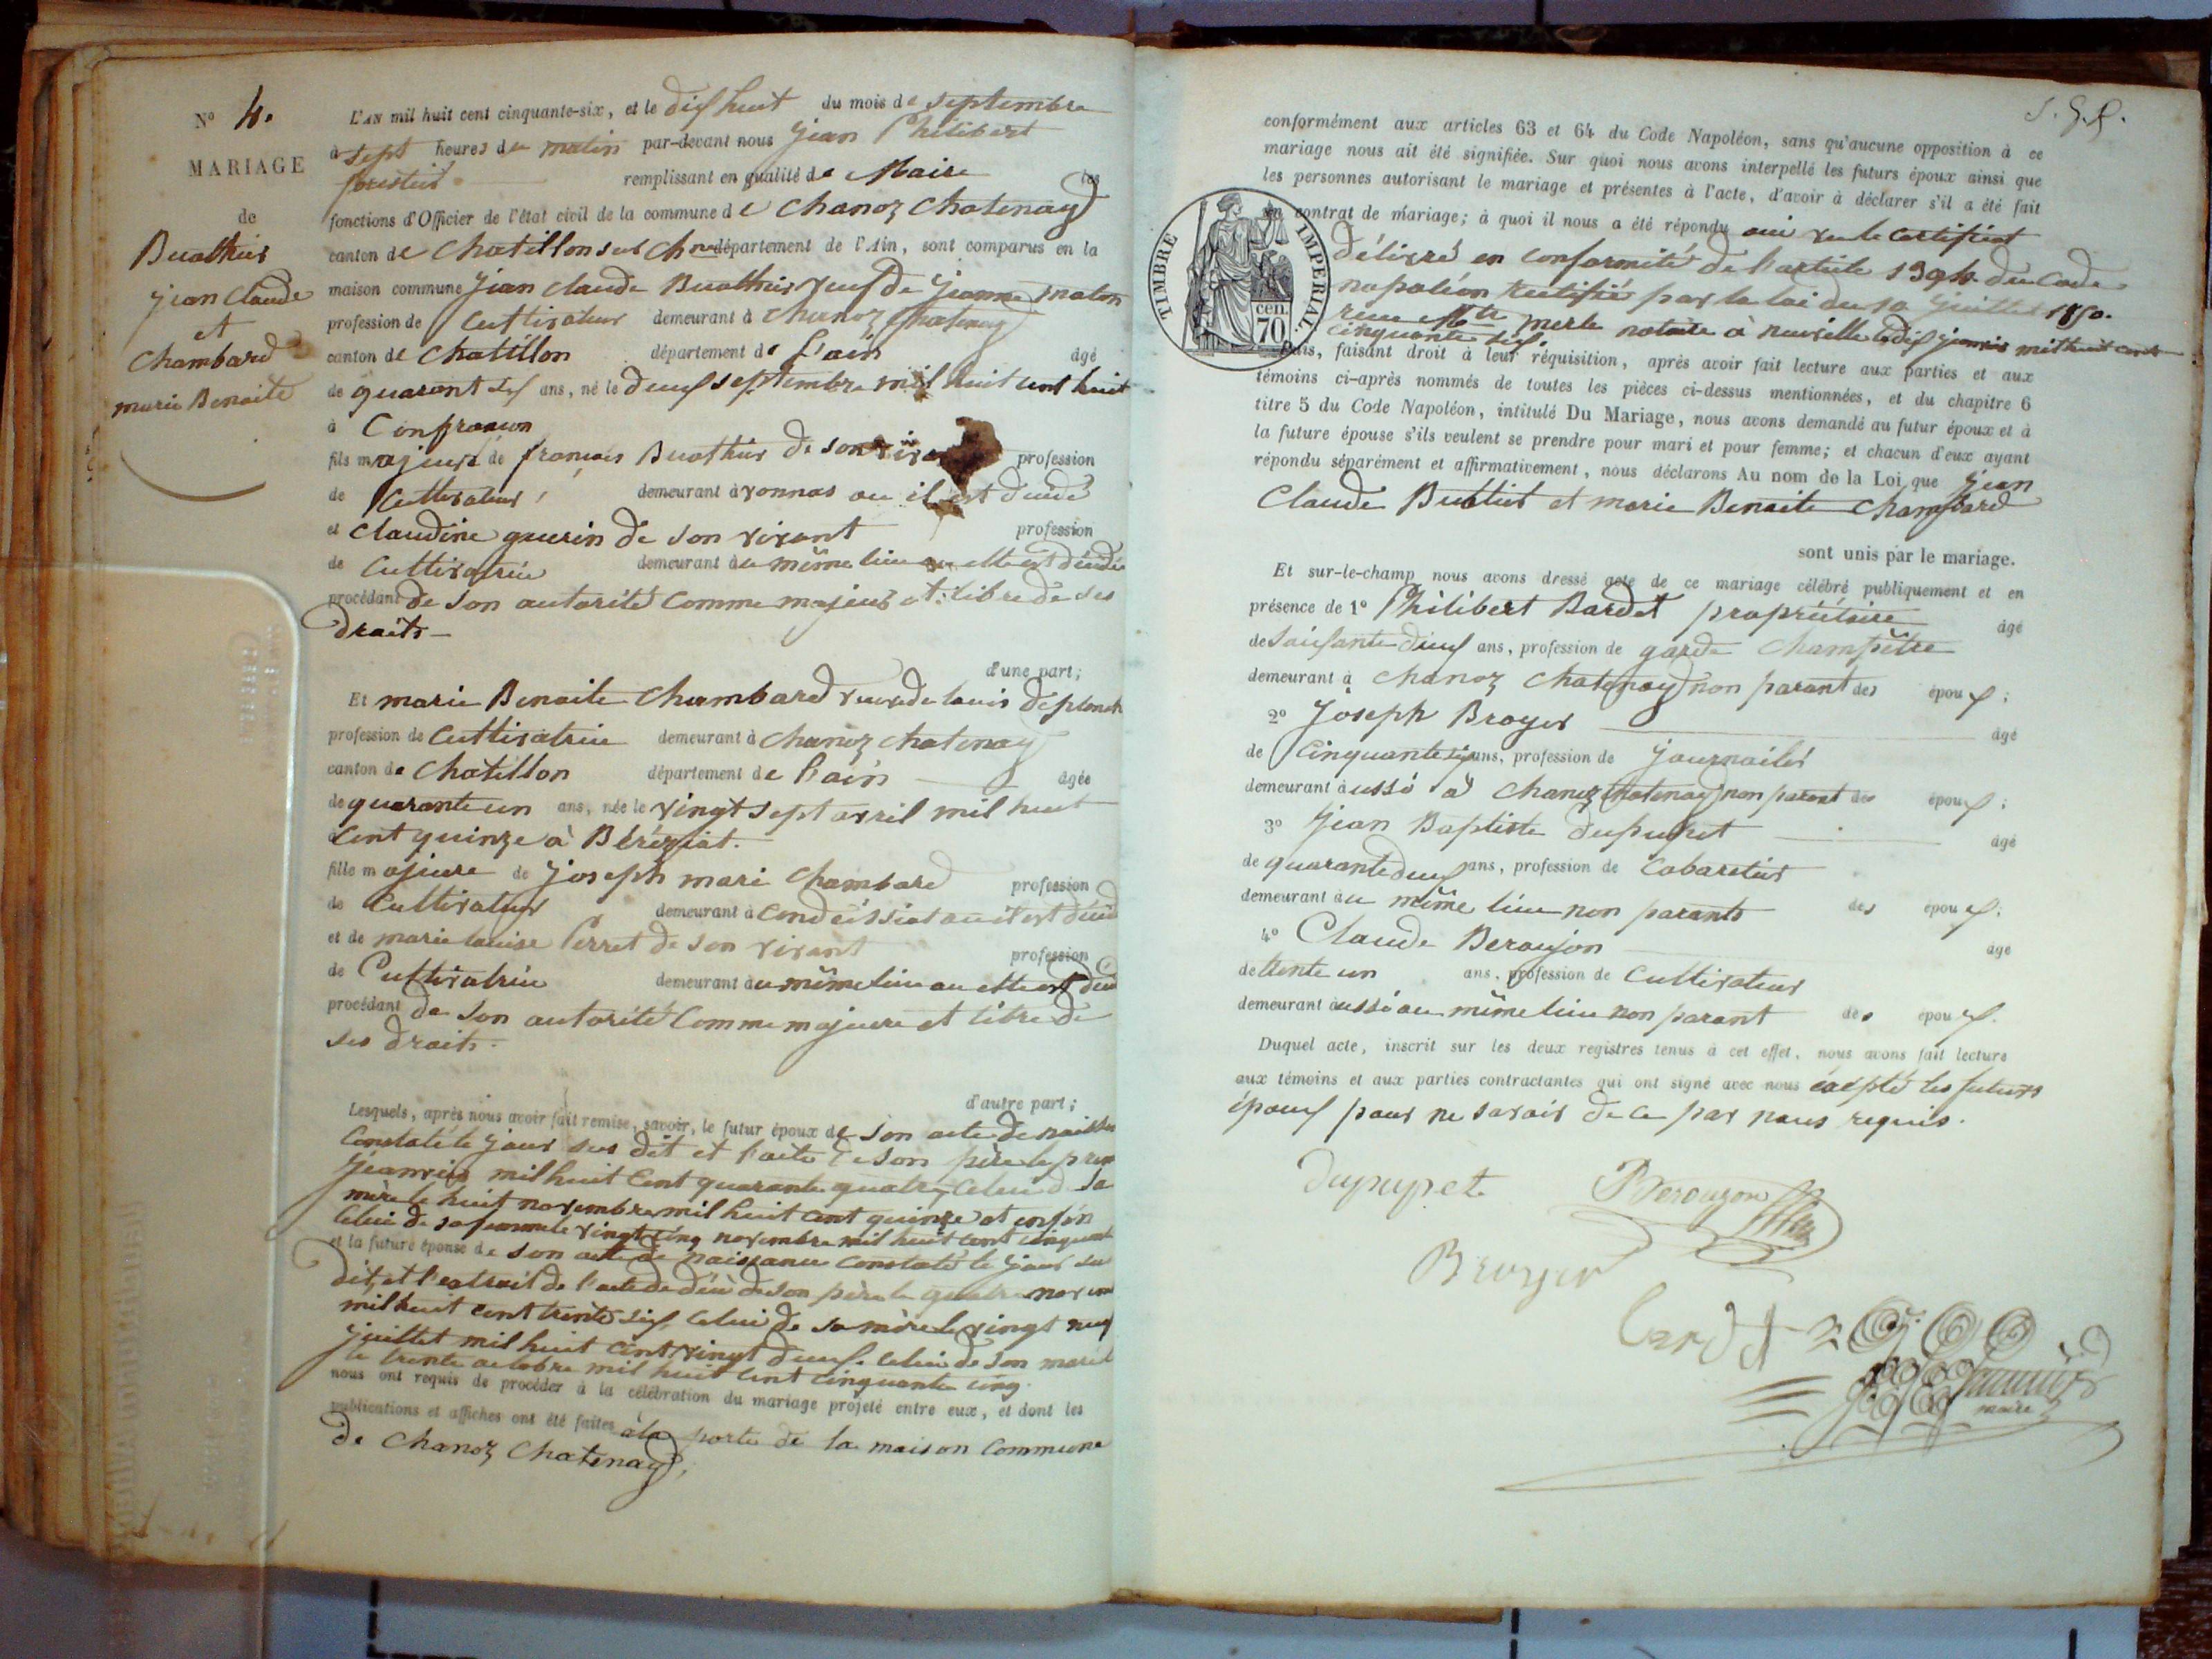 N° 4.
MARIAGE
de
Buathier
jean Claude
et
Chambard
marie Benoite
L'AN mil huit cent cinquante-six, et le dix huit du mois de septembre
à sept heures du matin par-devant nous jean Philibert
forestier remplissant en qualité de Maire les
fonctions d'Officier de l'état civil de la commune de Chanoz Chatenay
canton de Chatillon sur Chne département de l'Ain, sont comparus en la
maison commune jean claude Buathier veuf de jeanne maton
profession de Cultivateur demeurant à Chanoz Chatenay
canton de Chatillon département de l'ain âgé
de quarante six ans, né le deux septembre mil huit cent huit
à Confrançon
fils majeur de francois Buathier de son vivant profession
de Cultivateur demeurant à vonnas ou il est décédé
et Claudine guerin de son vivant profession
de Cultivatrice demeurant au même lieu ou elle est décédée
procédant de son autorité comme majeur et libre de ses
droits
d'une part;
Et marie Benoite Chambard veuve de louis deplanch
profession de Cultivatrice demeurant à Chanoz Chatenay
canton de Chatillon département de l'ain âgée
de quarante un ans, née le vingt sept avril mil huit
cent quinze à Béréziat.
fille majeure de joseph mari Chambard profession
de Cultivateur demeurant à Condeissiat ou il est décéd
et de marie louise Perret de son vivant profession
de Cultivatrice demeurant au même lieu ou elle est décéd
procédant de son autorité comme majeure et libre de
ses droits.
d'autre part;
Lesquels, après nous avoir fait remise, savoir, le futur époux de son acte de naissance
Constaté le jour sus dit et l'acte de son père le premier
jeanvier mil huit Cent quarante quatre, Celui de sa
mère le huit novembre mil huit cent quinze et enfin
Celui de sa femme le vingt cinq novembre mil huit cent cinquante
et la future épouse de son acte de naissance constaté le jour sus
dit, et l'extrait de l'acte de décè de son père le quatre novem
mil huit cent trente six, Celui de sa mère le vingt neuf
juillet mil huit cent vingt deux. Celui de son mari
le trente octobre mil huit cent cinquante cinq.
nous ont requis de procéder à la célébration du mariage projeté entre eux, et dont les
publications et affiches ont été faites à la porte de la maison Commune
de Chanoz Chatenay,
conformément aux articles 63 et 64 du Code Napoléon, sans qu'aucune opposition à ce
mariage nous ait été signifiée. Sur quoi nous avons interpellé les futurs époux ainsi que
les personnes autorisant le mariage et présentes à l'acte, d'avoir à déclarer s'il a été fait
un contrat de mariage; à quoi il nous a été répondu oui vu le Certificat
TIMBRE IMPERIAL.
70 cen.
délivré en conformité de l'article 1394 du Code
napoléon rectifié par la loi du 10 juillet 1850.
merle notaire à neuville le dix mil huit cent
cinquante six.
Puis, faisant droit à leur réquisition, après avoir fait lecture aux parties et aux
témoins ci-après nommés de toutes les pièces ci-dessus mentionnées, et du chapitre 6
titre 5 du Code Napoléon, intitulé Du Mariage, nous avons demandé au futur époux et à
la future épouse s'ils veulent se prendre pour mari et pour femme; et chacun d'eux ayant
répondu séparément et affirmativement, nous déclarons Au nom de la Loi que jean
Claude Buathier et marie Benoite Chambard
sont unis par le mariage.
Et sur-le-champ nous avons dressé acte de ce mariage célébré publiquement et en
présence de 1° Philibert Bardet propriétaire âgé
de soixante deux ans, profession de garde Champêtre
demeurant à Chanoz Chatenay non parant des époux;
2° Joseph Broyer âgé
de Cinquante six ans, profession de journailier
demeurant aussi à Chanoz Chatenay non parant des époux;
3° jean Baptiste dupupet âgé
de quarante deux ans, profession de Cabaretier
demeurant au même lieu non parants des époux;
4° Claude Beroujon âgé
de trente un ans, profession de Cultivateur
demeurant aussi au même lieu non parant des époux.
Duquel acte, inscrit sur les deux registres tenus à cet effet, nous avons fait lecture
aux témoins et aux parties contractantes qui ont signé avec nous excepté les futurs
époux pour ne savoir de ce par nous requis.
dupupet. Berougon
Broyer
Bardet
maire